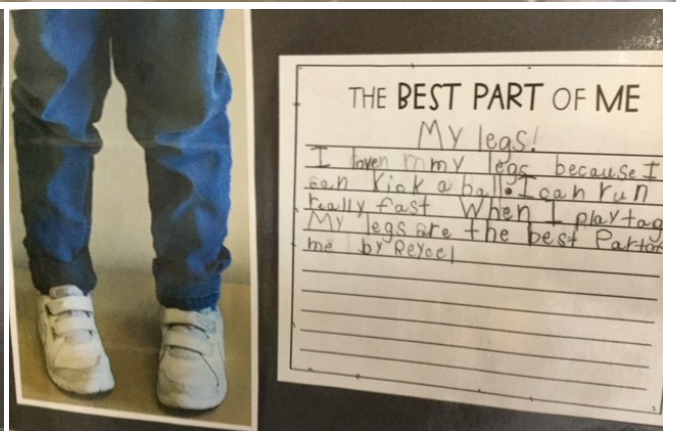 THE BEST PART OF ME
My legs!
I loven mmy legs because I
can kick a ball. I can run
really fast When I play tag
My legs are the best Part of
me by Reycel